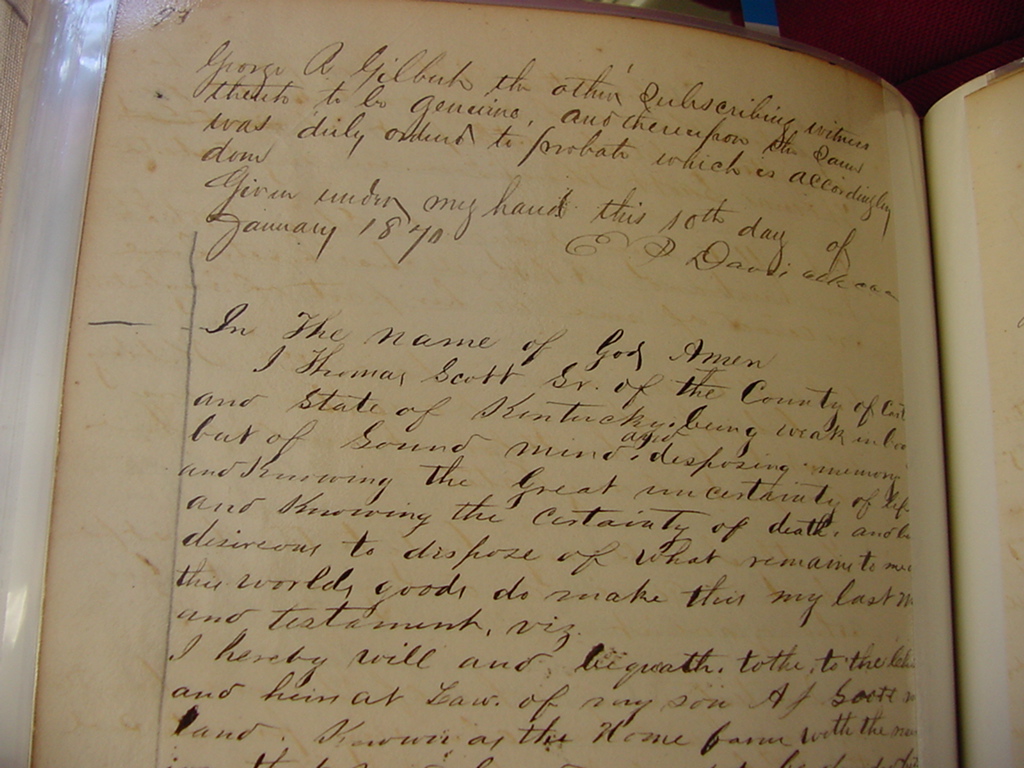 George R Gilbert the other Subscribing witness
thereto to be genuine, and thereupon the Same
was duly ordered to probate which is accordingly
done
Given under my hand this 10th day of
January 1870
In The name of God Amen
I Thomas Scott Sr. of the County of
and State of Kentucky being weak in
but of Sound mind and disposing memory
and Knowing the Great uncertainty of life
and Knowing the Certainty of death and
desireous to dispose of what remains to me
this worldly goods do make this my last
and testament, viz.
I hereby will and bequeath to the
and heirs at Law of my son A J Scott
and Known as the Home farm with the